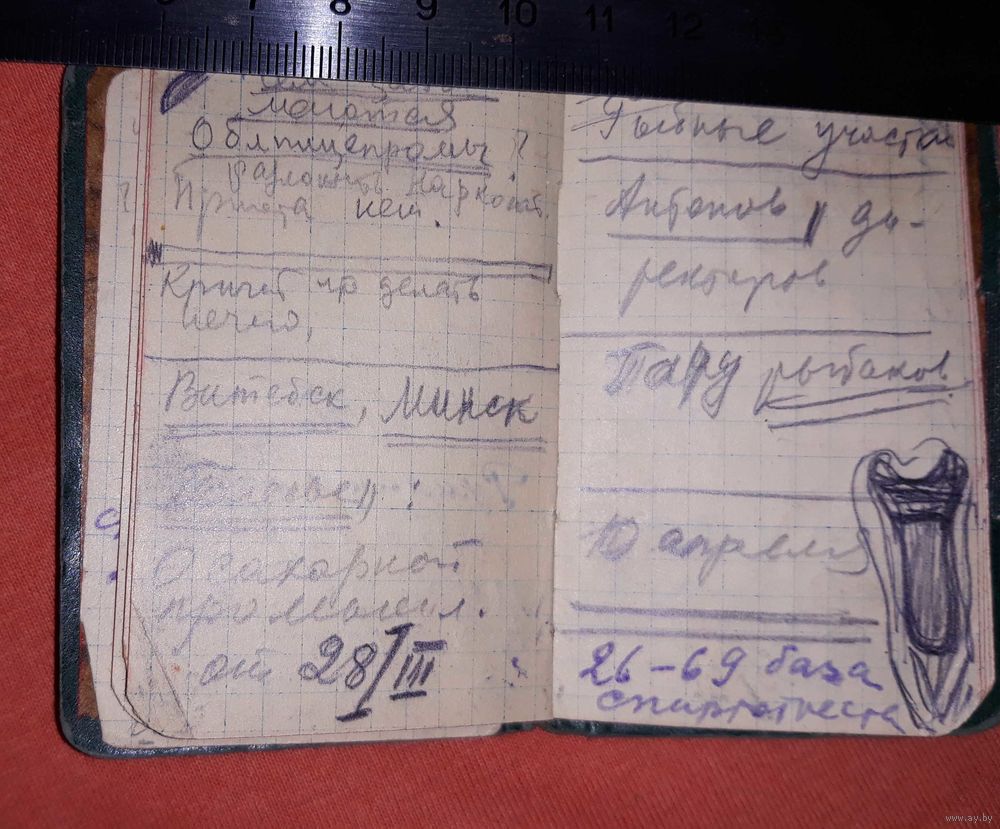 7 8 9 10 11 12
Облтицепромы?
разложить наркомат
Приета нет.
Кричат что делать
нечего,
Витебск, Минск
О сахарной
промышл.
от 28/III
Рыбные участки
Антонов || ди-
ректоров
Тару рыбаков
10 апреля
26-69 база
спиртотреста
www.ay.by